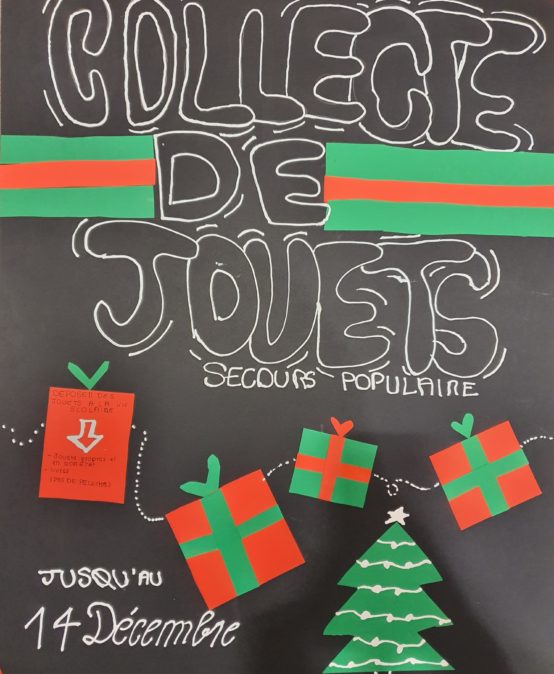 COLLECTE
DE
JOUETS
SECOURS POPULAIRE
DÉPOSER DES
JOUETS A LA VIE
SCOLAIRE
- JOUETS PROPRES ET
EN BON ÉTAT
(PAS DE PELUCHE)
JUSQU'AU
14 Décembre